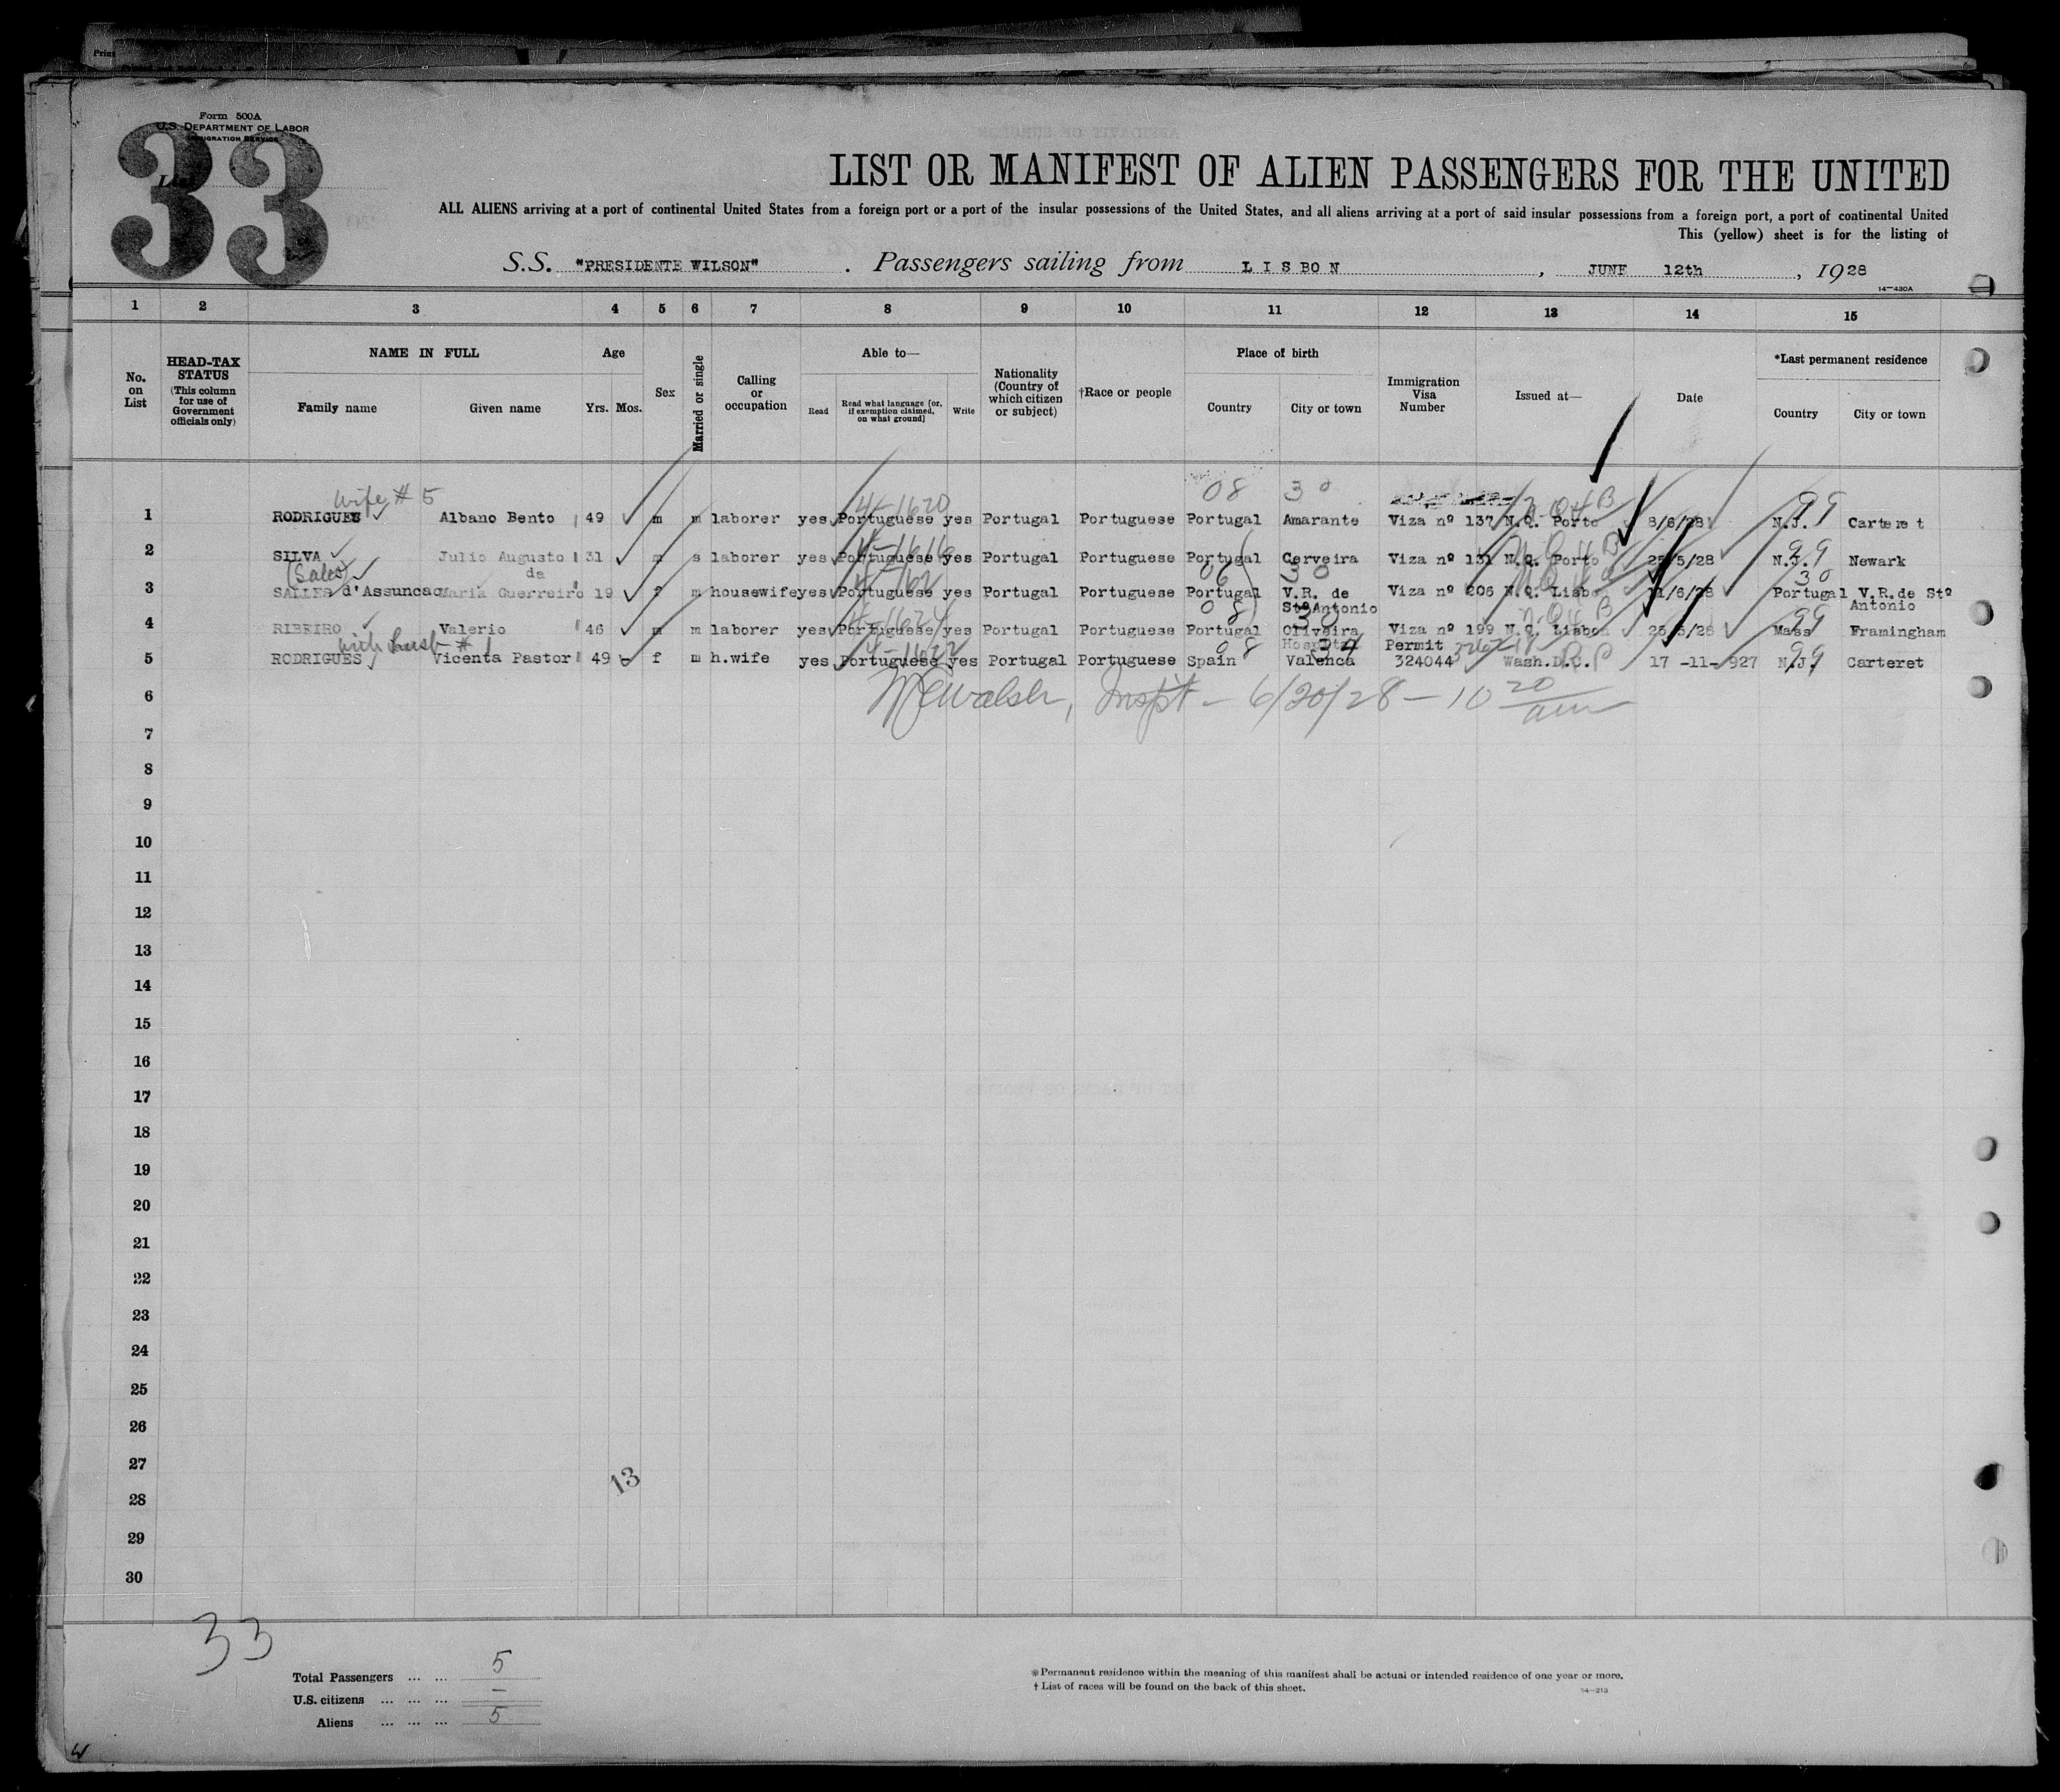 Form 500A
U.S. DEPARTMENT OF LABOR
IMMIGRATION SERVICE
List
33
LIST OR MANIFEST OF ALIEN PASSENGERS FOR THE UNITED
ALL ALIENS arriving at a port of continental United States from a foreign port or a port of the insular possessions of the United States, and all aliens arriving at a port of said insular possessions from a foreign port, a port of continental United
This (yellow) sheet is for the listing of
S.S. "PRESIDENTE WILSON". Passengers sailing from LISBON, JUNE 12th, 1928
14—430A
1 2 3 4 5 6 7 8 9 10 11 12 13 14 15
No. on List
HEAD-TAX STATUS (This column for use of Government officials only)
NAME IN FULL
Family name Given name
Age
Yrs. Mos.
Sex
Married or single
Calling or occupation
Able to—
Read
Read what language [or, if exemption claimed, on what ground]
Write
Nationality (Country of which citizen or subject)
†Race or people
Place of birth
Country City or town
Immigration Visa Number
Issued at—
Date
*Last permanent residence
Country City or town
wife # 5 4-1620 08 30 99
1 RODRIGUES Albano Bento 49 m m laborer yes Portuguese yes Portugal Portuguese Portugal Amarante Viza nº 137 N.Q. Porto 8/6/28 N.J. Carteret
4-1616 99
2 SILVA Julio Augusto da 31 m s laborer yes Portuguese yes Portugal Portuguese Portugal Cerveira Viza nº 131 N.Q. Porto 25/5/28 N.J. Newark
(Sales) 06 30 30
3 SALLES d'Assuncao Maria Guerreiro 19 f m housewife yes Portuguese yes Portugal Portuguese Portugal V.R. de Stº Antonio Viza nº 206 N.Q. Lisbo 11/6/28 Portugal V.R. de Stº Antonio
4-1624 08 30 99
4 RIBEIRO Valerio 46 m m laborer yes Portuguese yes Portugal Portuguese Portugal Oliveira Hospital Viza nº 199 N.Q. Lisbon 25/5/28 Mass Framingham
with husb # 1 4-1622 08 34 99
5 RODRIGUES Vicenta Pastor 49 f m h.wife yes Portuguese yes Portugal Portuguese Spain Valenca Permit 324044 Wash.D.C. 17-11-927 N.J. Carteret
6 Walsh, Inspt - 6/20/28 - 10 20 am
7
8
9
10
11
12
13
14
15
16
17
18
19
20
21
22
23
24
25
26
27
13
28
29
30
33
Total Passengers ... ... 5
U.S. citizens ... ... ... —
Aliens ... ... ... 5
*Permanent residence within the meaning of this manifest shall be actual or intended residence of one year or more.
† List of races will be found on the back of this sheet.
14—213